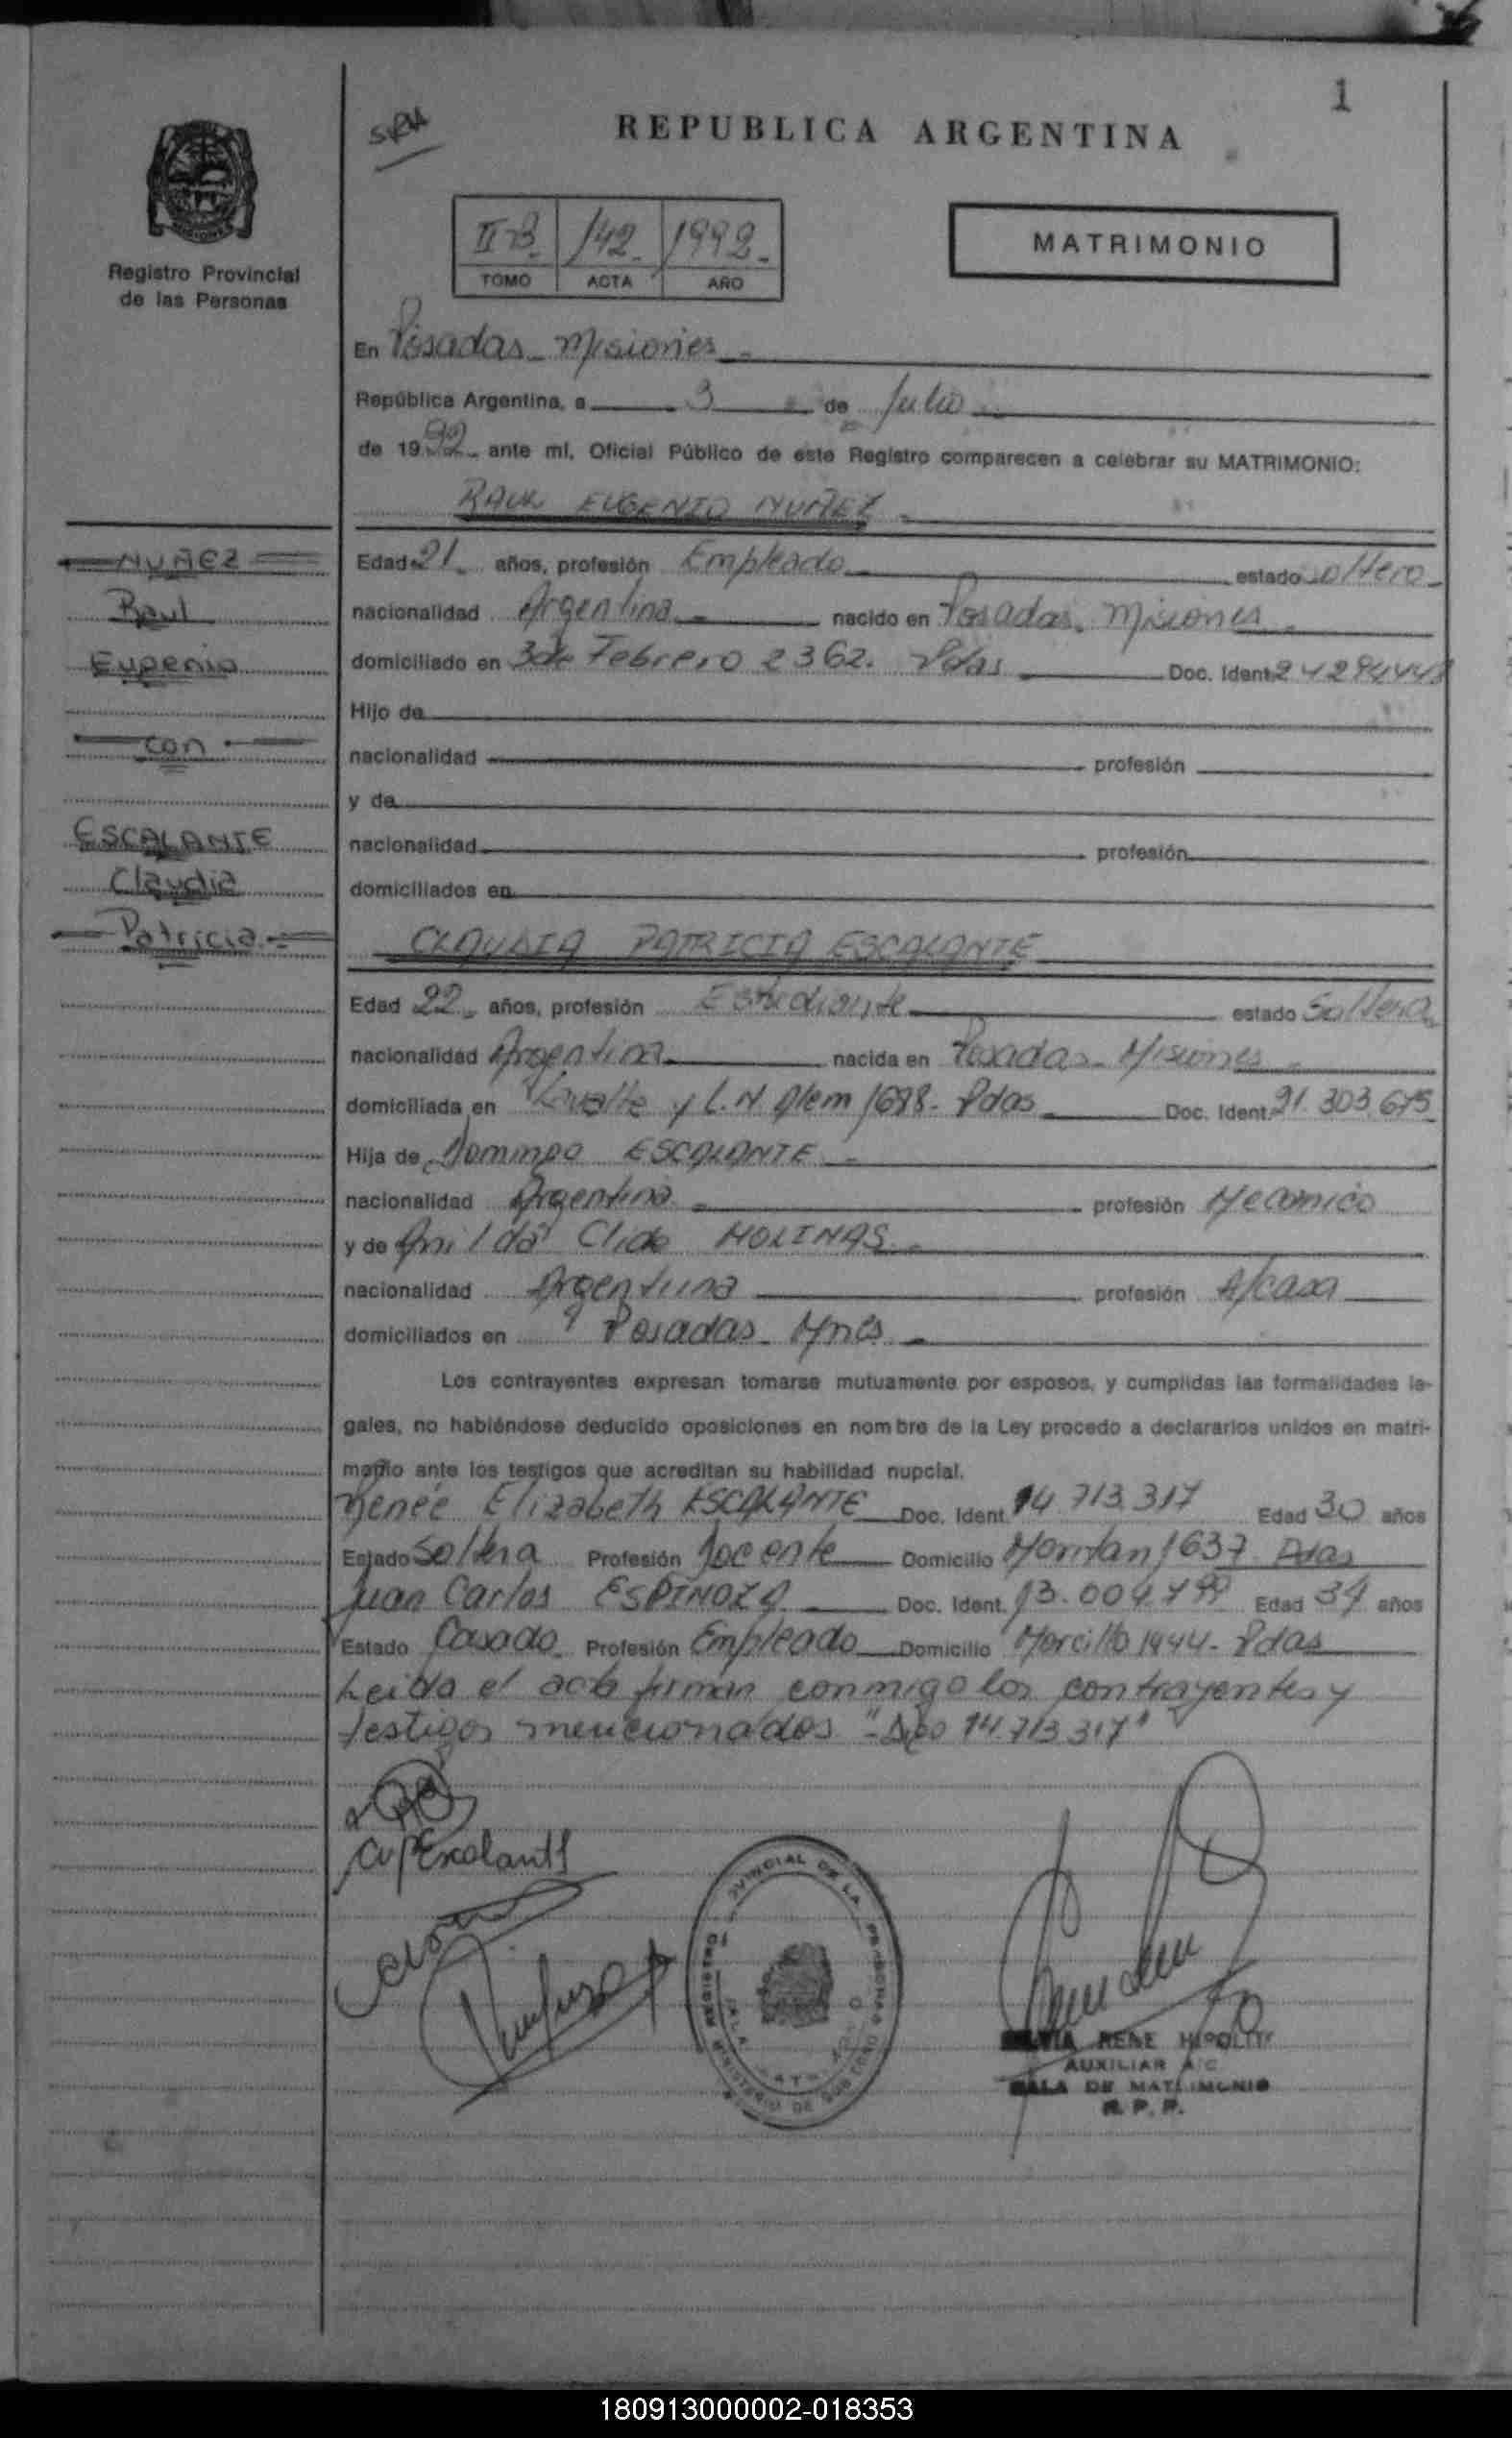 1
REPUBLICA ARGENTINA
MATRIMONIO
II-B. 142. 1992.
TOMO ACTA AÑO
Registro Provincial
de las Personas
En Posadas - Misiones -
República Argentina, a 3 de Julio
de 1992 ante mí, Oficial Público de este Registro comparecen a celebrar su MATRIMONIO:
RAUL EUGENIO NUÑEZ
NUÑEZ
Raul
Eugenio
con
ESCALANTE
Claudia
Patricia
Edad 21 años, profesión Empleado estado soltero
nacionalidad Argentina nacido en Posadas. Misiones
domiciliado en 3 de Febrero 2362. Pdas Doc. Ident.
Hijo de
nacionalidad profesión
y de
nacionalidad profesión
domiciliados en
CLAUDIA PATRICIA ESCALANTE
Edad 22 años, profesión Estudiante estado Soltera
nacionalidad Argentina nacida en Posadas - Misiones
domiciliada en y L. N. Alem 1698 - Pdas Doc. Ident. 21.303.675
Hija de Domingo ESCALANTE
nacionalidad Argentina profesión Mecanico
y de Clide MOLINAS
nacionalidad Argentina profesión A/casa
domiciliados en Posadas - Mnes
Los contrayentes expresan tomarse mutuamente por esposos, y cumplidas las formalidades le-
gales, no habiéndose deducido oposiciones en nombre de la Ley procedo a declararlos unidos en matri-
monio ante los testigos que acreditan su habilidad nupcial.
Renée Elizabeth ESCALANTE Doc. Ident. 14.713.317 Edad 30 años
Estado Soltera Profesión Docente Domicilio 1637 Pdas
Juan Carlos ESPINOZA Doc. Ident. 13.004.799 Edad 34 años
Estado Casado Profesión Empleado Domicilio Morcillo 1944 - Pdas
Leida el acta firman conmigo los contrayentes y
testigos mencionados "- 14.713.317"
RENE HIPOLITO
AUXILIAR A/C
SALA DE MATRIMONIO
R. P. P.
180913000002-018353